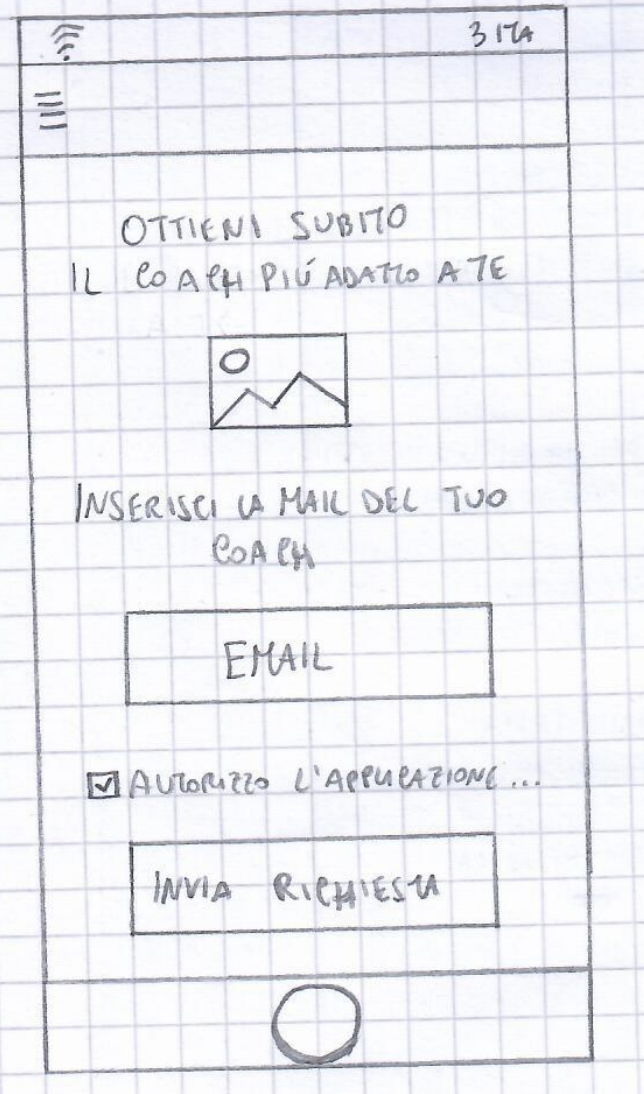 3 ITA
OTTIENI SUBITO
IL COACH PIÚ ADATTO A TE
INSERISCI LA MAIL DEL TUO
COACH
EMAIL
AUTORIZZO L'APPLICAZIONE...
INVIA RICHIESTA